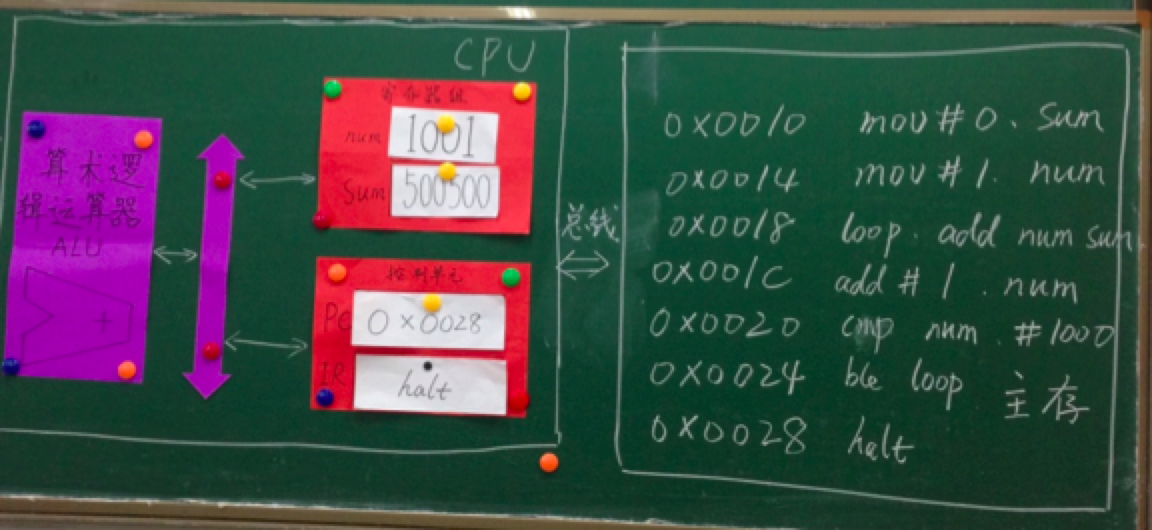 CPU
算术逻
辑运算器
ALU
寄存器组
num 1001
Sum 500500
控制单元
PC 0x0028
IR halt
总线
0x0010 mov #0. Sum
0x0014 mov #1. num
0x0018 loop. add num sum
0x001C add #1. num
0x0020 cmp num. #1000
0x0024 ble loop
0x0028 halt
主存